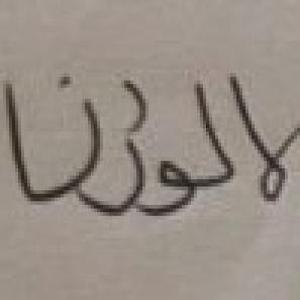 لالوزنا